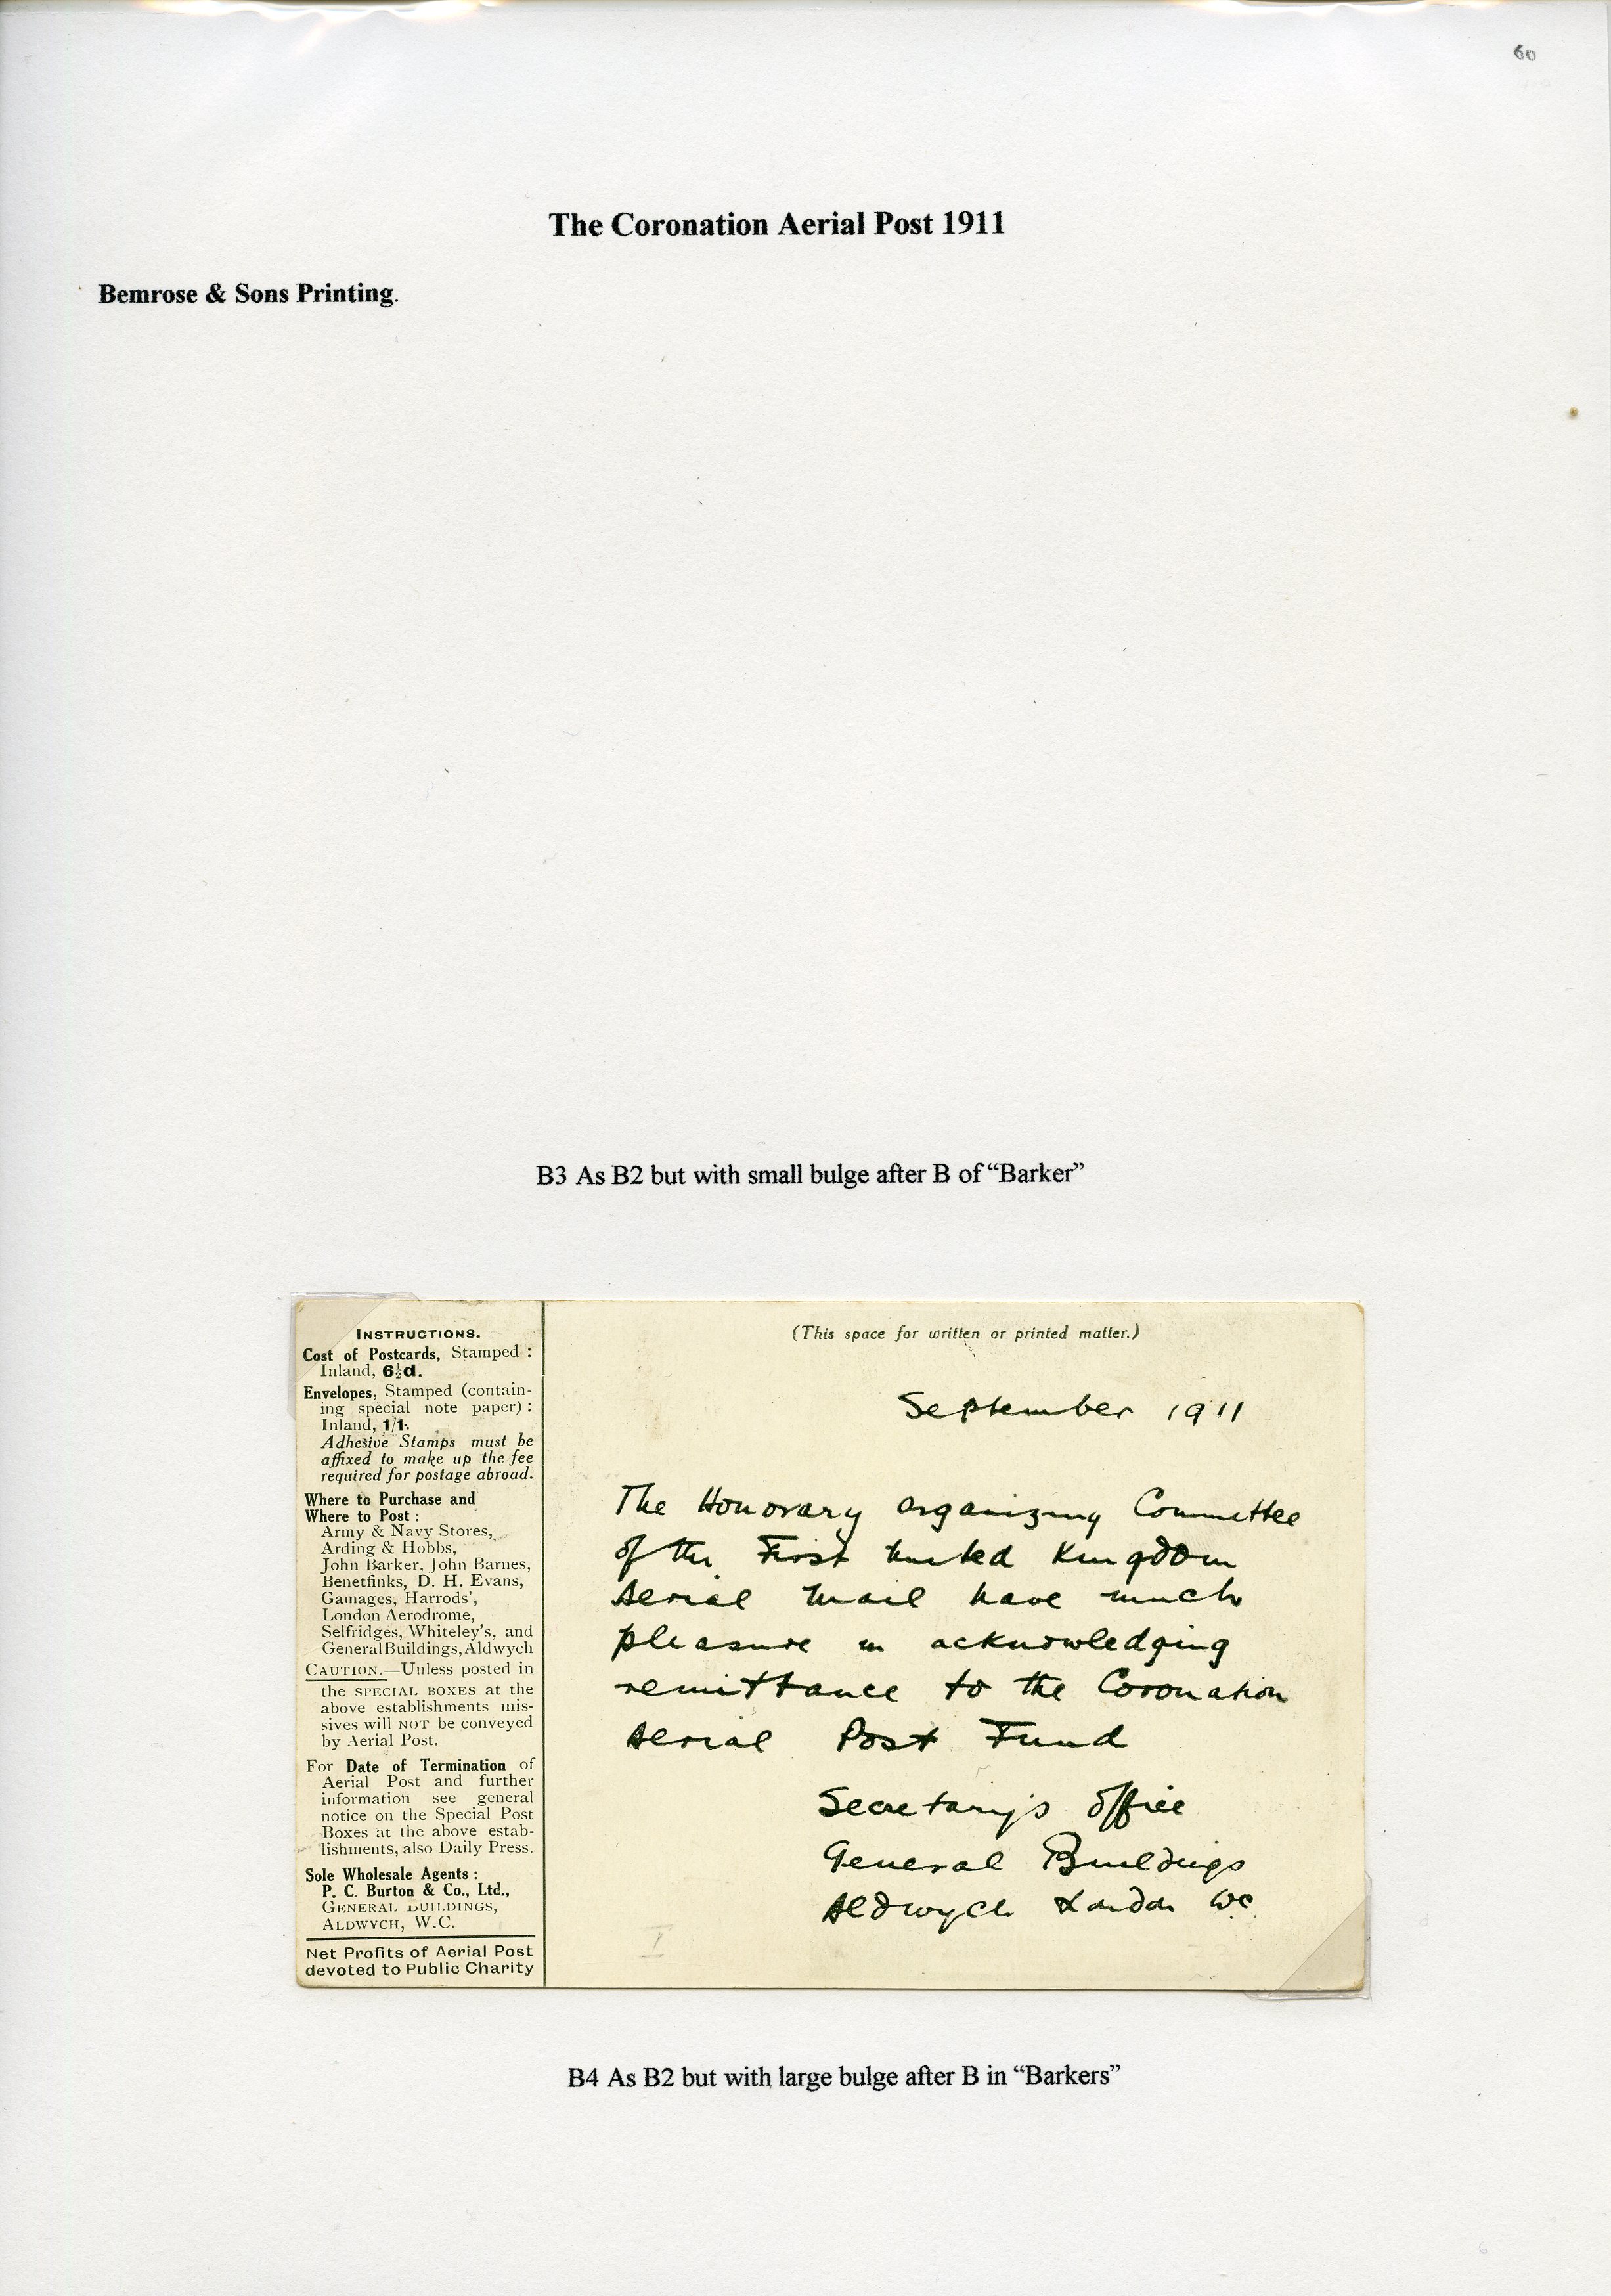 60
The Coronation Aerial Post 1911
Bemrose & Sons Printing.
B3 As B2 but with small bulge after B of “Barker”
INSTRUCTIONS.
Cost of Postcards, Stamped :
Inland, 6½d.
Envelopes, Stamped (contain-
ing special note paper) :
Inland, 1/1.
Adhesive Stamps must be
affixed to make up the fee
required for postage abroad.
Where to Purchase and
Where to Post :
Army & Navy Stores,
Arding & Hobbs,
John Barker, John Barnes,
Benetfinks, D. H. Evans,
Gamages, Harrods',
London Aerodrome,
Selfridges, Whiteley's, and
General Buildings, Aldwych
CAUTION.—Unless posted in
the SPECIAL BOXES at the
above establishments mis-
sives will NOT be conveyed
by Aerial Post.
For Date of Termination of
Aerial Post and further
information see general
notice on the Special Post
Boxes at the above estab-
lishments, also Daily Press.
Sole Wholesale Agents :
P. C. Burton & Co., Ltd.,
GENERAL BUILDINGS,
ALDWYCH, W.C.
Net Profits of Aerial Post
devoted to Public Charity
(This space for written or printed matter.)
September 1911
The Honorary organizing Committee
of the First United Kingdom
Aerial Mail have much
pleasure in acknowledging
remittance to the Coronation
Aerial Post Fund
Secretary's Office
General Buildings
Aldwych London WC
I
B4 As B2 but with large bulge after B in “Barkers”
6